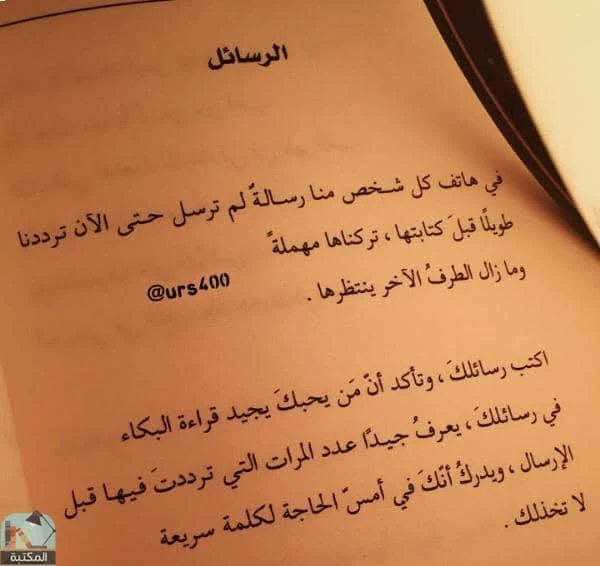 الرسائل
في هاتف كل شخص منا رسالةٌ لم ترسل حتى الآن ترددنا
طويلًا قبلَ كتابتها ، تركناها مهملةً
وما زال الطرفُ الآخر ينتظرها .
@urs400
اكتب رسائلكَ ، وتأكد أنّ مَن يحبكَ يجيد قراءة البكاء
في رسائلكَ ، يعرفُ جيدًا عدد المرات التي ترددتَ فيها قبل
الإرسال ، ويدركُ أنّكَ في أمسّ الحاجة لكلمة سريعة
لا تخذلك .
المكتبة